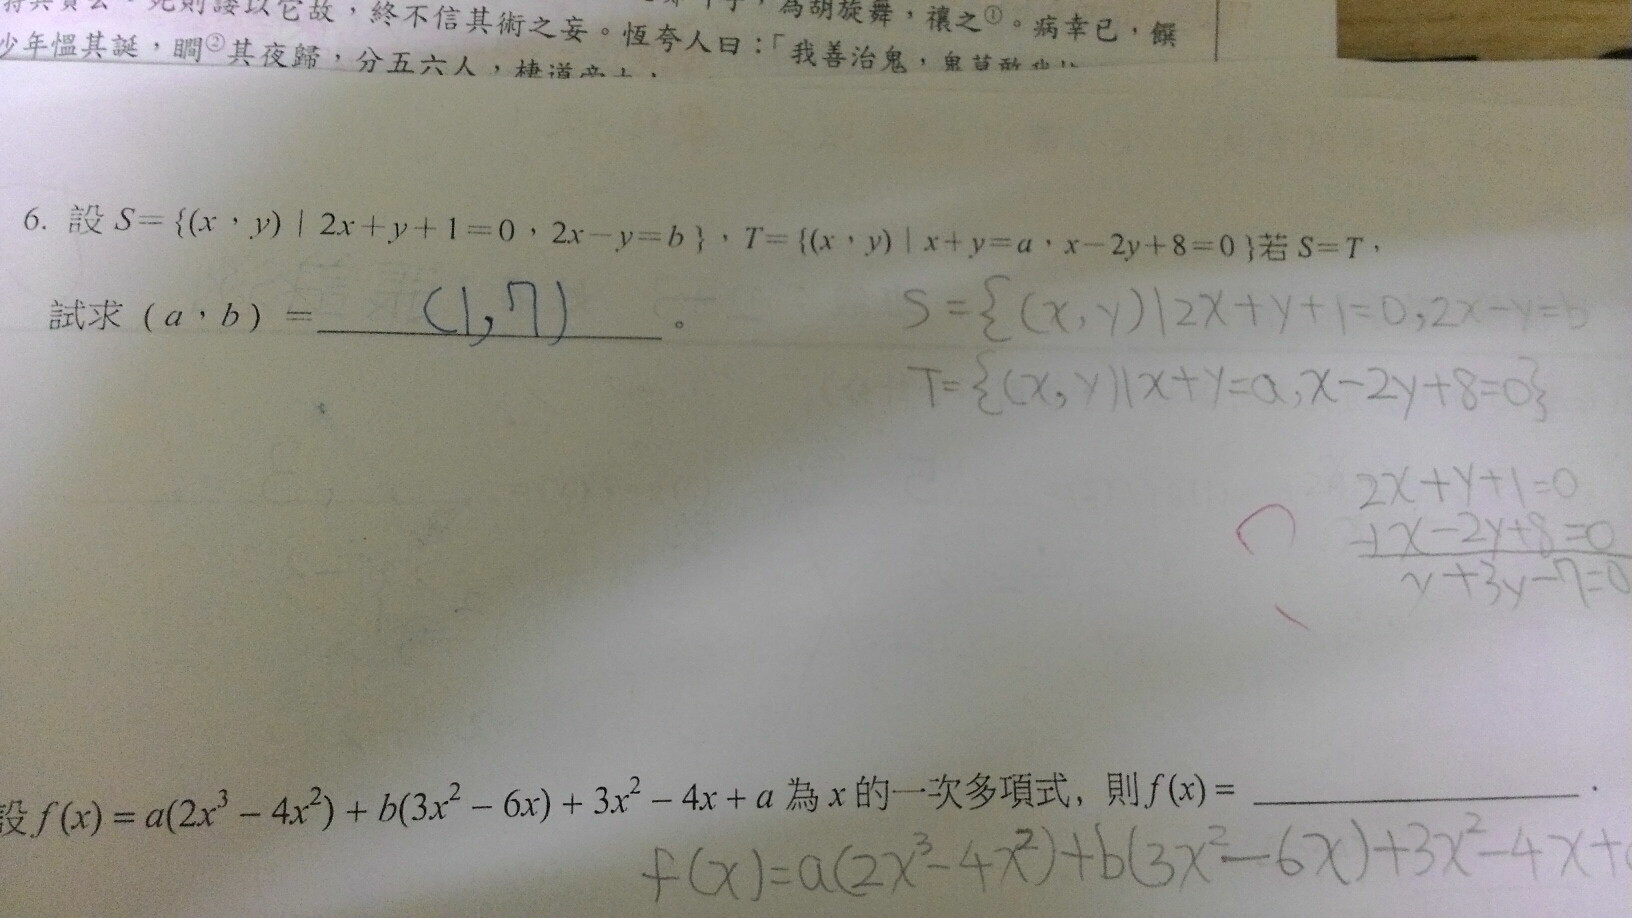 死則諉以它故，終不信其術之妄。恆夸人曰：「我善治鬼，鬼莫敢我
為胡旋舞，禳之①。病幸已，饌
少年慍其誕，瞷②其夜歸，分五六人，棲道
6. 設 S={(x，y)｜2x+y+1=0，2x-y=b}，T={(x，y)｜x+y=a，x-2y+8=0}若 S=T，
試求 (a，b) = (1,7) 。
S={(x,y)|2x+y+1=0,2x-y=b
T={(x,y)|x+y=a,x-2y+8=0}
2x+y+1=0
x-2y+8=0
x+3y-7=0
設 f(x) = a(2x³ - 4x²) + b(3x² - 6x) + 3x² - 4x + a 為 x 的一次多項式, 則 f(x) = .
f(x)=a(2x³-4x²)+b(3x²-6x)+3x²-4x+